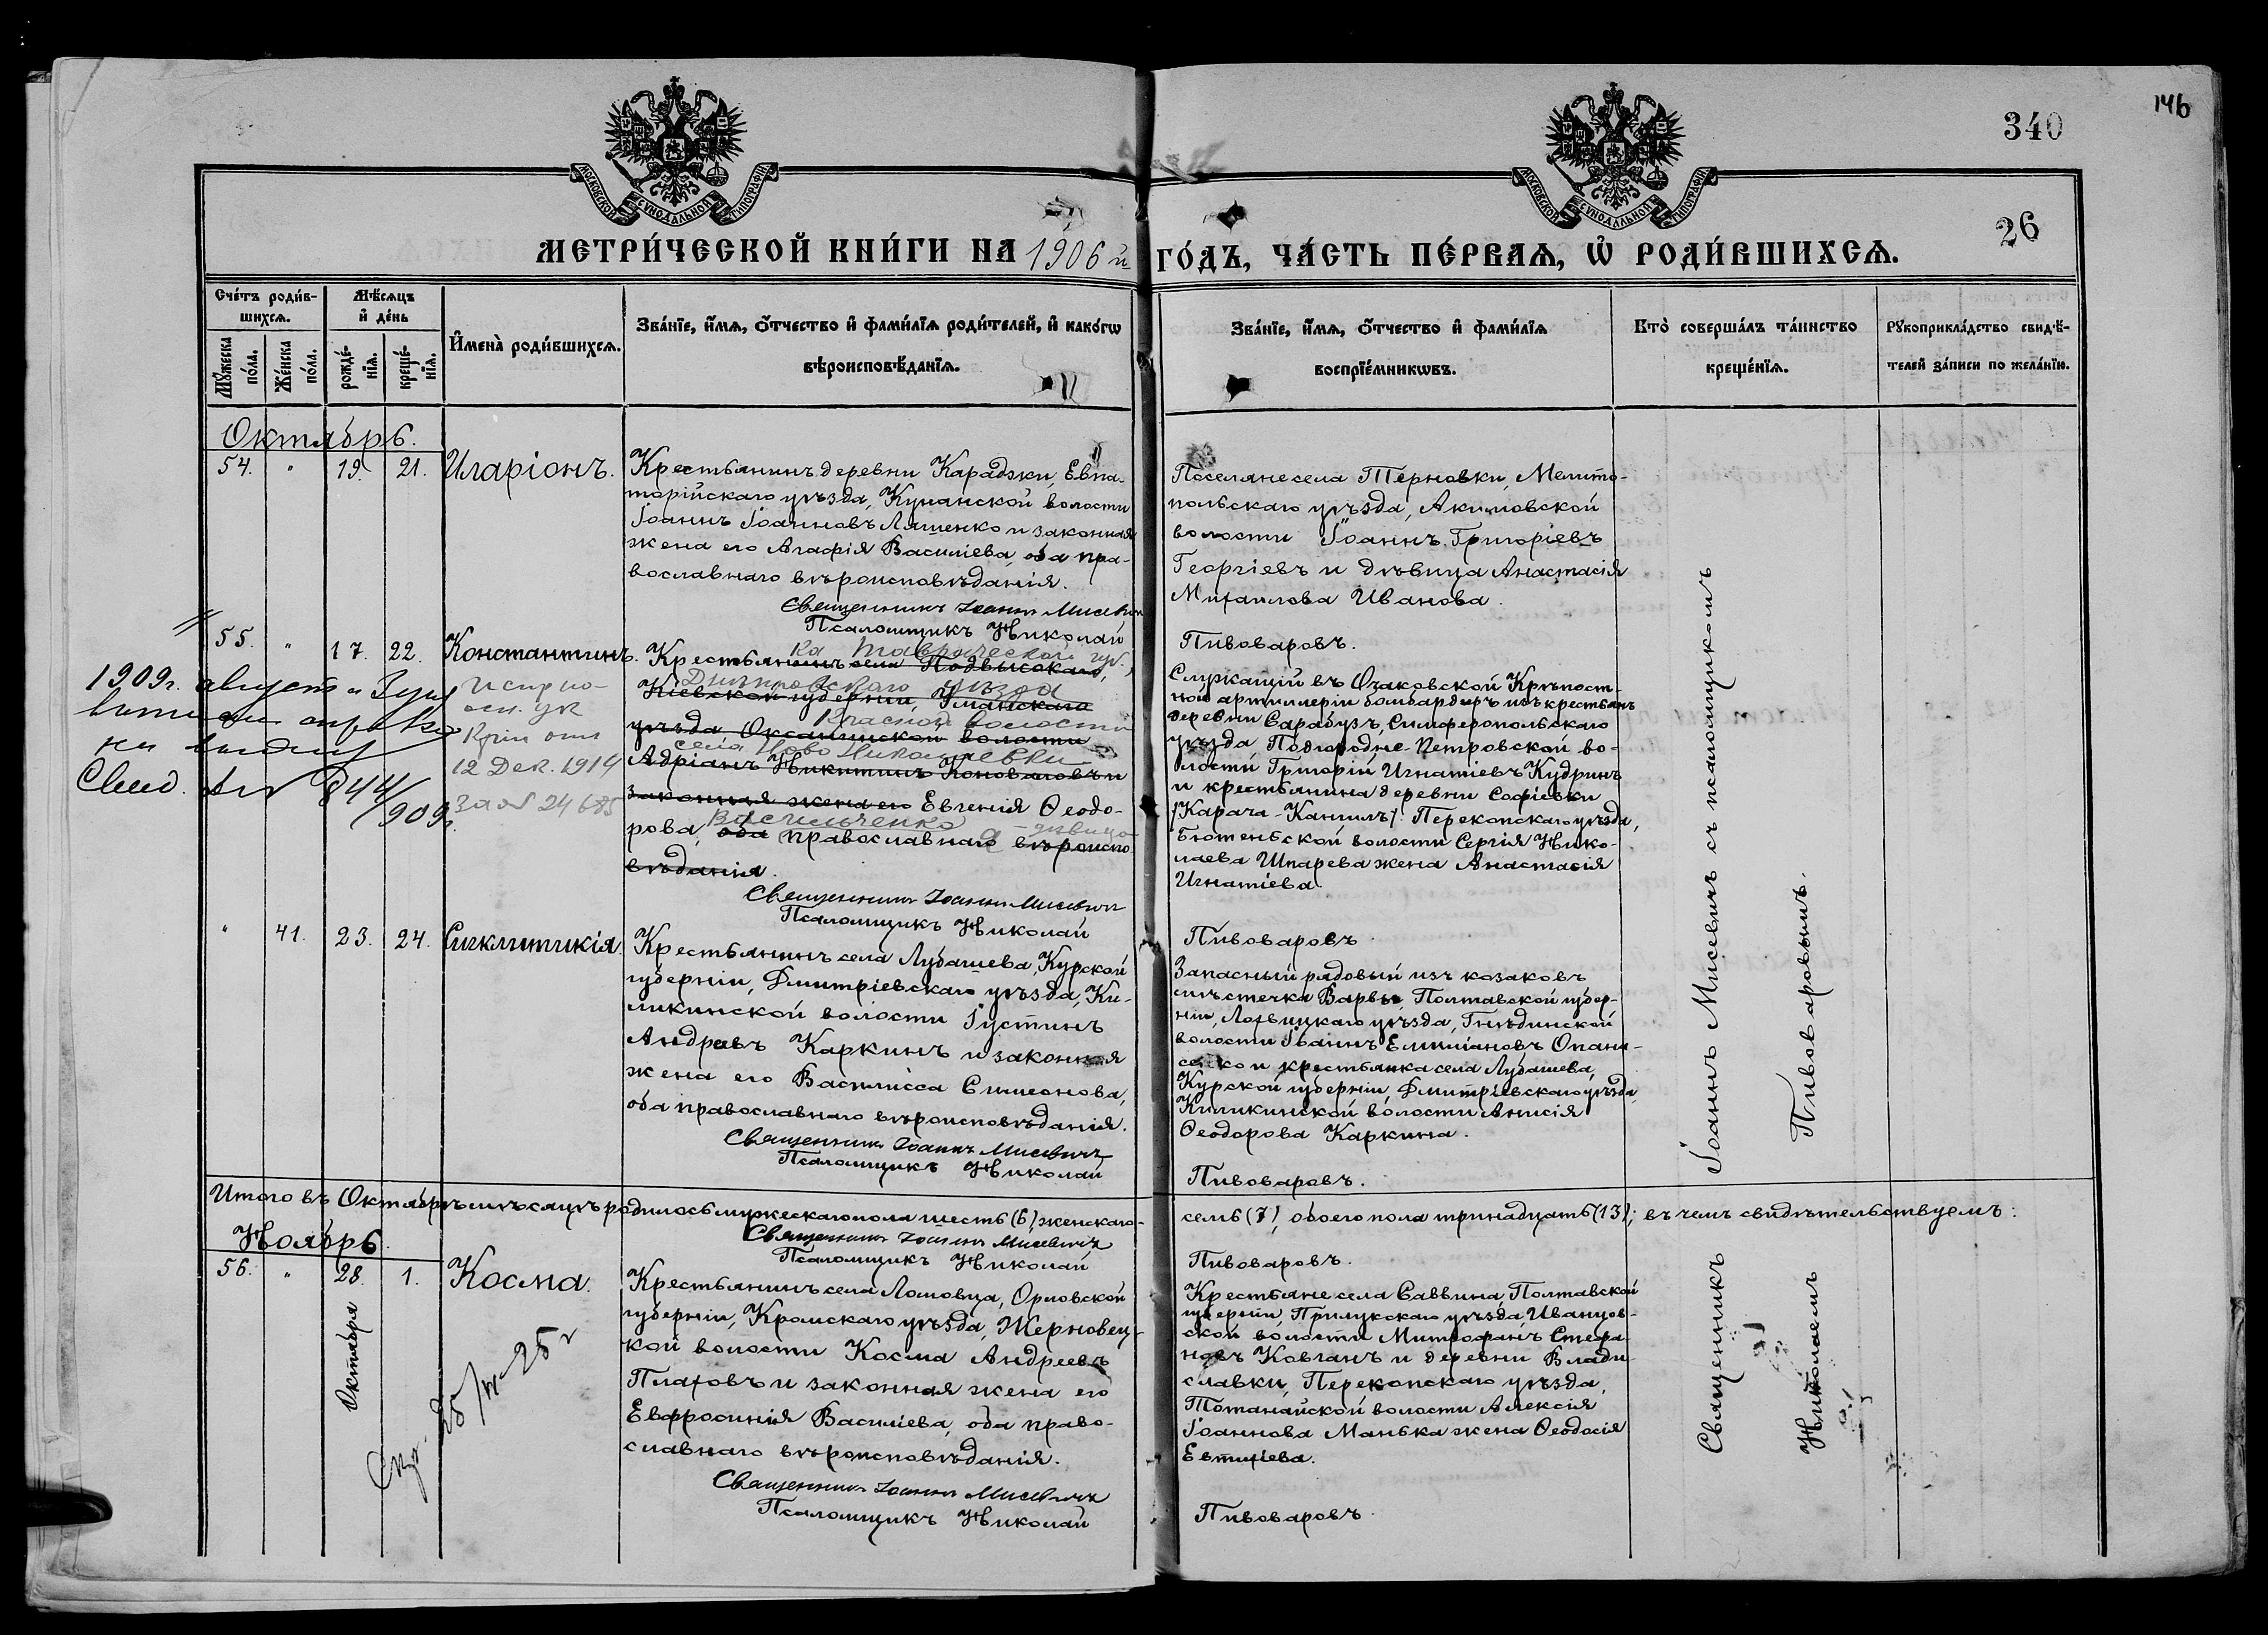 146
340
26
МОСКОВСКОЙ СѴНОДАЛЬНОЙ ТИПОГРАФІИ
МОСКОВСКОЙ СѴНОДАЛЬНОЙ ТИПОГРАФІИ
МЕТРИ́ЧЕСКОЙ КНИ́ГИ НА 1906 й ГО́ДЪ, ЧА́СТЬ ПЕ́РВАѦ, Ѡ҆ РОДИ́ВШИХСѦ.
Сче́тъ роди́в-
шихсѧ.
Мꙋ́жеска по́ла.
Же́нска по́ла.
Мѣ́сѧцъ
и҆ де́нь
рожде́-
нїѧ.
креще́-
нїѧ.
И҆мена̀ роди́вшихсѧ.
Зва́нїе, и҆́мѧ, ѻ҆́тчество и҆ фами́лїѧ роди́телей, и҆ како́гѡ
вѣроисповѣ́данїѧ.
Зва́нїе, и҆́мѧ, ѻ҆́тчество и҆ фами́лїѧ
воспрїе́мникѡвъ.
Кто̀ соверша́лъ та́инство
креще́нїѧ.
Рꙋкоприкла́дство свидѣ́-
телей за́писи по жела́нїю.
Октябрь.
54. " 19. 21. Иларіонъ.
Крестьянинъ деревни Караджи, Евпа-
торійскаго уѣзда, Кунанской волости
Іоаннъ Іоанновъ Ляшенко и законная
жена его Агафія Василіева, оба пра-
вославнаго вѣроисповѣданія.
Священникъ Іоаннъ Мисевич
Псаломщикъ Николай
Поселяне села Терновки, Мелито-
польскаго уѣзда, Акимовской
волости Іоаннъ Григоріевъ
Георгіевъ и дѣвица Анастасія
Михаилова Иванова.
Пивоваровъ.
55. " 17. 22. Константинъ.
1909г. август
844/909г.
осн. ук
12 Дек. 1914
за № 24685
ка Таврической губ.
Крестьянинъ села Подвысокаго,
Днѣпровскаго уѣзда
Кіевской губерніи, Уманскаго
Красной волости
уѣзда, Оксанинской волости
села Ново Николаевки
Адріанъ Никитинъ Коноваловъ и
законная жена его Евгенія Ѳеодо-
Васильченко - дѣвица
рова, оба православнаго вѣроиспо-
вѣданія.
Священникъ Іоаннъ Мисевич
Псаломщикъ Николай
Служащій въ Очаковской Крѣпост-
ной артиллеріи бомбардиръ изъ крестьянъ
деревни Сарабузъ, Симферопольскаго
уѣзда, Подгородне-Петровской во-
лости Григорій Игнатіевъ Кудринъ
и крестьянина деревни Софіевки
/Карача-Кангилъ/ Перекопскаго уѣзда,
Бютеньской волости Сергія Нико-
лаева Шпарева жена Анастасія
Игнатіева.
Пивоваровъ.
" 41. 23. 24. Сигклитикія.
Крестьянинъ села Лубашева, Курской
губерніи, Дмитріевскаго уѣзда, Ки-
ликинской волости Іустинъ
Андреевъ Каркинъ и законная
жена его Василисса Симеонова,
оба православнаго вѣроисповѣданія.
Священникъ Іоаннъ Мисевичъ
Псаломщикъ Николай
Запасный рядовый изъ козаковъ
мѣстечка Варвы, Полтавской губер-
ніи, Лохвицкаго уѣзда, Гнѣдинской
волости Іоаннъ Емиліановъ Опана-
сенко и крестьянка села Лубашева,
Курской губерніи, Дмитріевскаго уѣзда,
Киликинской волости Анисія
Ѳеодорова Каркина.
Пивоваровъ.
Іоаннъ Мисевичъ съ псаломщикомъ
Пивоваровымъ.
Итого въ Октябрѣ мѣсяцѣ родилось мужескаго пола шесть (6) женскаго-
семь (7), обоего пола тринадцать (13); въ чемъ свидѣтельствуемъ:
Священникъ Іоаннъ Мисевичъ
Псаломщикъ Николай
Пивоваровъ.
Ноябрь.
56. " 28. 1. Косма.
Октября
25 г
Крестьянинъ села Ломовца, Орловской
губерніи, Кромскаго уѣзда, Жерновец-
кой волости Косма Андреевъ
Плаховъ и законная жена его
Евфросинія Василіева, оба право-
славнаго вѣроисповѣданія.
Священникъ Іоаннъ Мисевичъ
Псаломщикъ Николай
Крестьяне села Саввина, Полтавской
губерніи, Прилукскаго уѣзда, Иванцов-
ской волости Митрофанъ Стефа-
новъ Ковганъ и деревни Влади-
славки, Перекопскаго уѣзда,
Тотанайской волости Алексія
Іоаннова Манька жена Ѳеодосія
Евтихіева.
Пивоваровъ.
Священникъ
Николаемъ